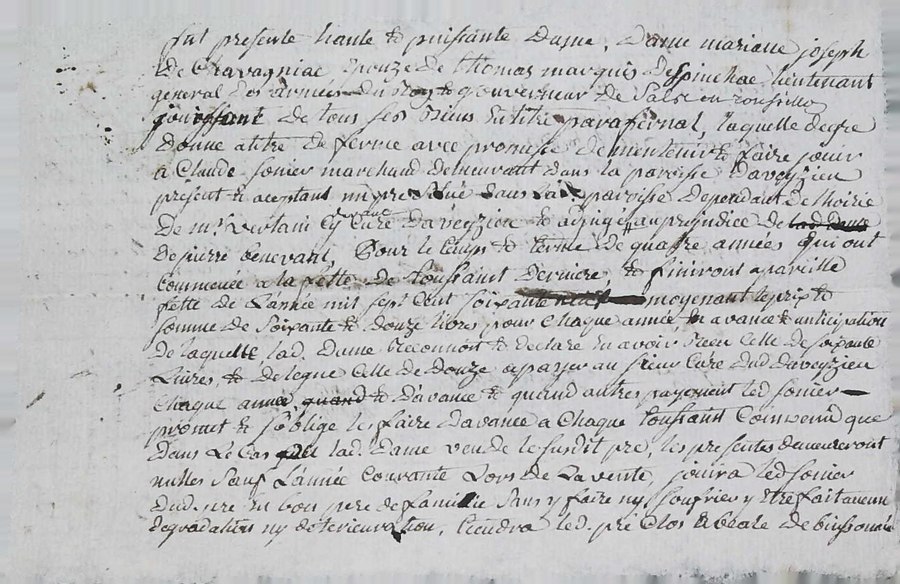 fut presente haute & puissante Dame, Dame mariane joseph
De Chavagniac Epouze De thomas marquis Despinchac lieutenant
general Des armées Du Roy & gouverneur De Salse en roussillon
jouissant De tous ses Biens En titre parafernal, laquelle De gre
Donne a titre De ferme avec promesse De mintenir & faire jouir
a Claude sonier marchand Demeurant Dans la paroise Daveyzieu
present & aceptant un pre situé Dans lad. paroise Dependant De lhoirie
De mre Curé Daveyzieu & ajugé au prejudice De lad Dame
De pierre benevant, Pour le temps & terme De quatre années qui ont
Commencée a la fette De toussaint Derniere & finiront a pareille
fette De L'année mil sept Cent soixante neuf moyenant le prix &
somme De Soixante & douze livres pour Chaque année, En avance & anticipation
De laquelle lad. Dame Reconnoit & Declare En avoir Receu Celle De soixante
Livres, & Delegue Celle De Douze a payer au sieur Curé Dud Daveyzieu
Chaque année, quand & D'avance & quand autres payement led sonier
promet & s'oblige les faire D'avance a Chaque toussaint Convenu que
Dans Le Cas que lad. Dame vende le susdit pre, les presentes demeureront
nulles Sauf L'année Courante Lors De La vente, jouira led sonier
Dud. pre En bon pere De famillie Sans y faire ny souffrir y Etre fait aucune
degradation ny deterieuration, tiendra led. pre Clos & De